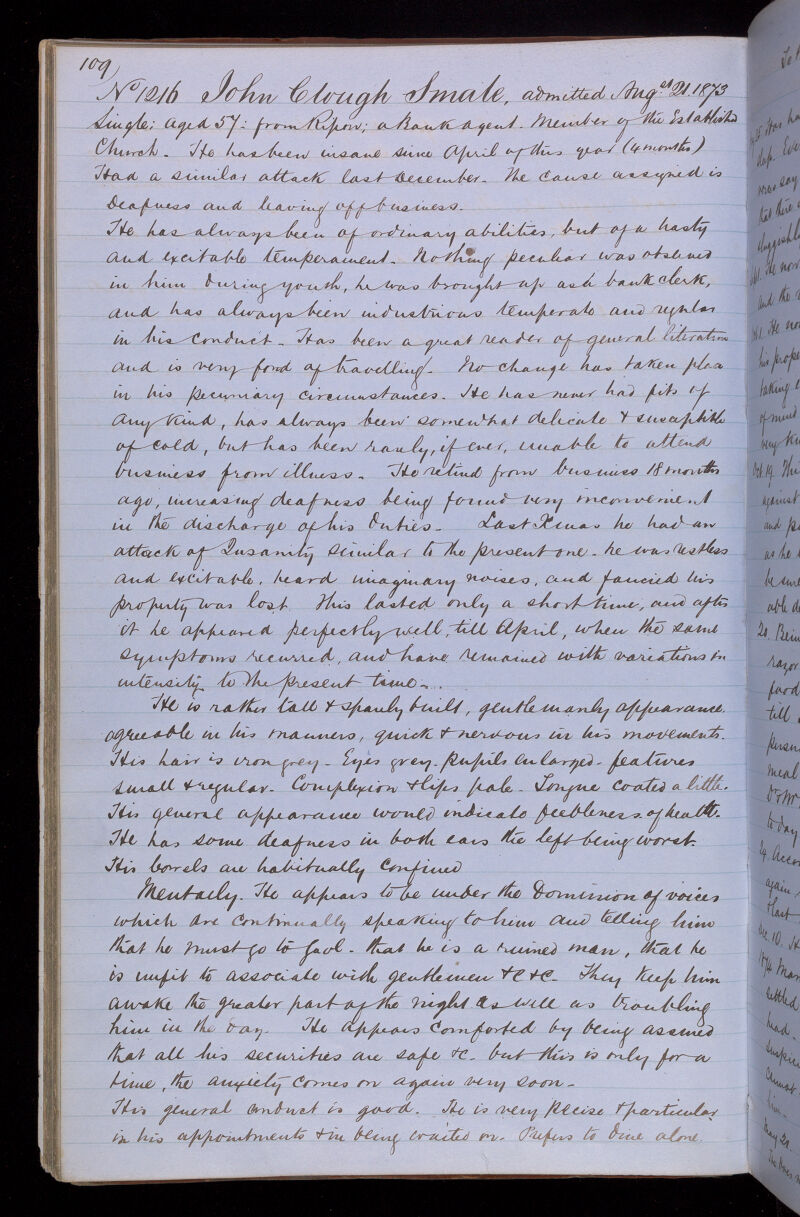 109
No 1216 John Clough Smale, admitted Augst 21. 1873
Single: aged 57: from Ripon; a Bank agent. Member of the Established
Church. He has been insane since April of this year (4 months)
Had a similar attack last December. The cause assigned is
Deafness and leaving off business.
He has always been of ordinary abilities, but of a hasty
and excitable temperament. Nothing peculiar was observed
in him during youth, he was brought up as a bank clerk,
and has always been industrious temperate and regular
in his conduct. Has been a great reader of general literature
and is very fond of travelling. No change has taken place
in his pecuniary circumstances. He has never had fits of
any kind, has always been somewhat delicate & susceptible
of cold, but has been rarely, if ever, unable to attend
business from illness. He retired from business 18 months
ago, increasing deafness being found very inconvenient
in the discharge of his duties. Last Xmas he had an
attack of Insanity similar to the present one. he was restless
and excitable, heard imaginary noises, and fancied his
property was lost. This lasted only a short time, and after
it he appeared perfectly well, till April, when the same
symptoms recurred, and have remained with variations in
intensity to the present time.
He is rather tall & sparely built, gentlemanly appearance
agreeable in his manners, quick & nervous in his movements.
His hair is iron grey. Eyes grey. pupils enlarged. features
small & regular. Complexion & lips pale. Tongue coated a little.
His general appearance would indicate feebleness of health.
He has some deafness in both ears the left being worst.
His bowels are habitually confined
Mentally. He appears to be under the Dominion of voices
which are continually speaking to him and telling him
that he must go to Gaol. that he is a ruined man, that he
is unfit to associate with gentlemen &c &c. They keep him
awake the greater part of the night as well as troubling
him in the day. He appears comforted by being assured
that all his securities are safe &c. but this is only for a
time, the anxiety comes on again very soon.
His general conduct is good. He is very precise & particular
in his appointments & in being waited on. Prefers to dine alone.